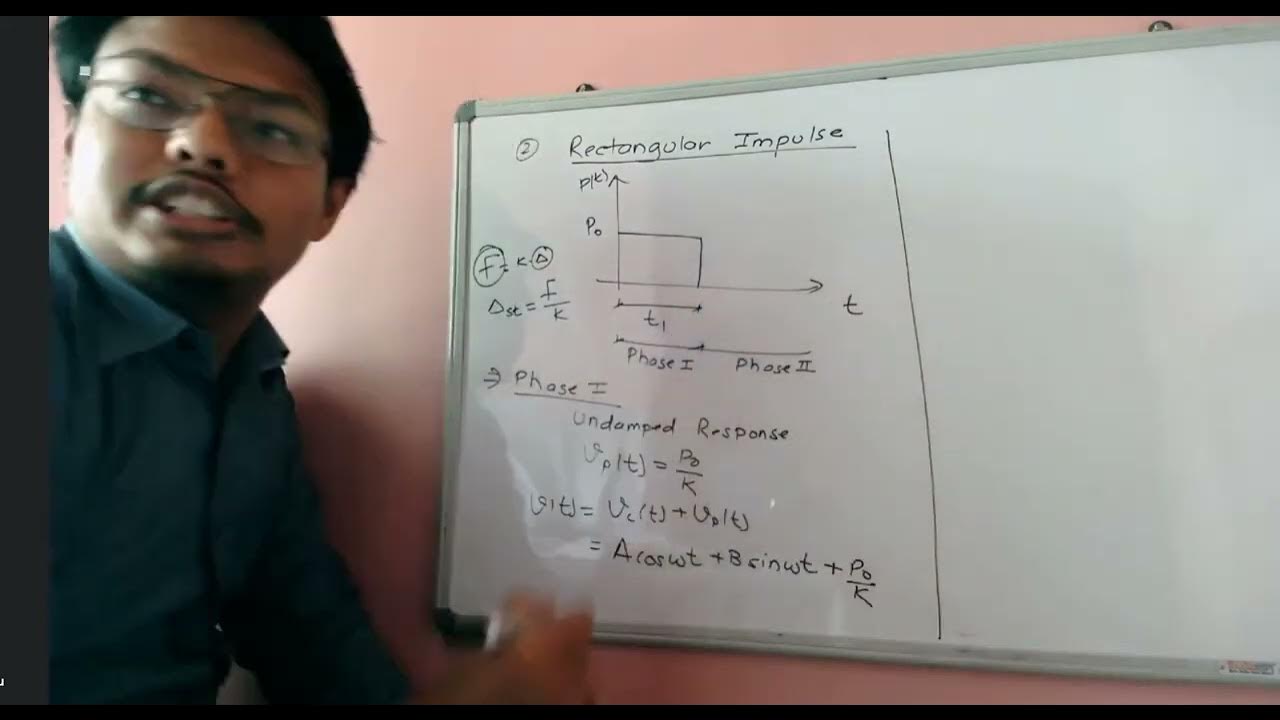 ② Rectangular Impulse
P(t)
P₀
F = KΔ
Δst = F/K
t₁
t
Phase I Phase II
⇒ Phase I
Undamped Response
𝑣p(t) = P₀/K
𝑣(t) = 𝑣c(t) + 𝑣p(t)
= A cosωt + B sinωt + P₀/K